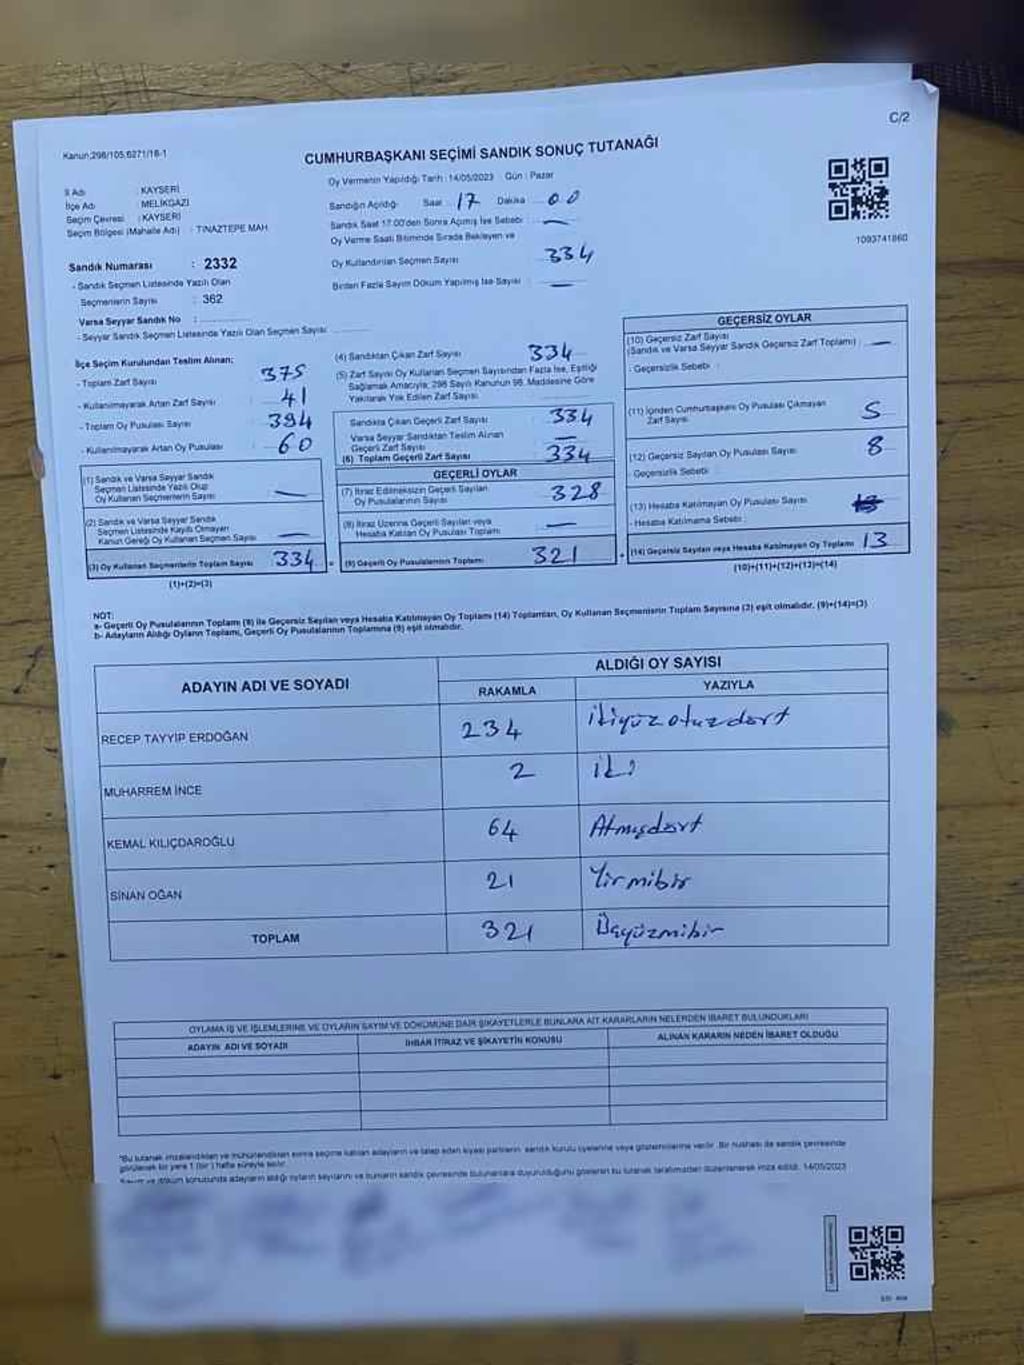 C/2
Kanun:298/105,6271/18-1
CUMHURBAŞKANI SEÇİMİ SANDIK SONUÇ TUTANAĞI
İl Adı : KAYSERİ
İlçe Adı : MELİKGAZİ
Seçim Çevresi : KAYSERİ
Seçim Bölgesi (Mahalle Adı) : TINAZTEPE MAH
Sandık Numarası : 2332
- Sandık Seçmen Listesinde Yazılı Olan
Seçmenlerin Sayısı : 362
Varsa Seyyar Sandık No :
- Seyyar Sandık Seçmen Listesinde Yazılı Olan Seçmen Sayısı
Oy Vermenin Yapıldığı Tarih : 14/05/2023 Gün : Pazar
Sandığın Açıldığı Saat 17 Dakika 00
Sandık Saat 17.00'den Sonra Açılmış İse Sebebi : —
Oy Verme Saati Bitiminde Sırada Bekleyen ve
Oy Kullandırılan Seçmen Sayısı 334
Birden Fazla Sayım Döküm Yapılmış İse Sayısı : —
1093741860
İlçe Seçim Kurulundan Teslim Alınan;
- Toplam Zarf Sayısı 375
- Kullanılmayarak Artan Zarf Sayısı 41
- Toplam Oy Pusulası Sayısı 394
- Kullanılmayarak Artan Oy Pusulası 60
(1) Sandık ve Varsa Seyyar Sandık
Seçmen Listesinde Yazılı Olup
Oy Kullanan Seçmenlerin Sayısı —
(2) Sandık ve Varsa Seyyar Sandık
Seçmen Listesinde Kayıtlı Olmayan
Kanun Gereği Oy Kullanan Seçmen Sayısı —
(3) Oy Kullanan Seçmenlerin Toplam Sayısı 334
(1)+(2)=(3)
(4) Sandıktan Çıkan Zarf Sayısı 334
(5) Zarf Sayısı Oy Kullanan Seçmen Sayısından Fazla İse, Eşitliği
Sağlamak Amacıyla; 298 Sayılı Kanunun 98. Maddesine Göre
Yakılarak Yok Edilen Zarf Sayısı
Sandıkta Çıkan Geçerli Zarf Sayısı 334
Varsa Seyyar Sandıktan Teslim Alınan
Geçerli Zarf Sayısı —
(6) Toplam Geçerli Zarf Sayısı 334
GEÇERLİ OYLAR
(7) İtiraz Edilmeksizin Geçerli Sayılan
Oy Pusulalarının Sayısı 328
(8) İtiraz Üzerine Geçerli Sayılan veya
Hesaba Katılan Oy Pusulası Toplamı —
= (9) Geçerli Oy Pusulalarının Toplamı 321
GEÇERSİZ OYLAR
(10) Geçersiz Zarf Sayısı
(Sandık ve Varsa Seyyar Sandık Geçersiz Zarf Toplamı) —
- Geçersizlik Sebebi :
(11) İçinden Cumhurbaşkanı Oy Pusulası Çıkmayan
Zarf Sayısı 5
(12) Geçersiz Sayılan Oy Pusulası Sayısı 8
Geçersizlik Sebebi
(13) Hesaba Katılmayan Oy Pusulası Sayısı
- Hesaba Katılmama Sebebi :
+ (14) Geçersiz Sayılan veya Hesaba Katılmayan Oy Toplamı 13
(10)+(11)+(12)+(13)=(14)
NOT:
a- Geçerli Oy Pusulalarının Toplamı (9) ile Geçersiz Sayılan veya Hesaba Katılmayan Oy Toplamı (14) Toplamları, Oy Kullanan Seçmenlerin Toplam Sayısına (3) eşit olmalıdır. (9)+(14)=(3)
b- Adayların Aldığı Oyların Toplamı, Geçerli Oy Pusulalarının Toplamına (9) eşit olmalıdır.
ADAYIN ADI VE SOYADI ALDIĞI OY SAYISI
RAKAMLA YAZIYLA
RECEP TAYYİP ERDOĞAN 234 ikiyüzotuzdört
MUHARREM İNCE 2 iki
KEMAL KILIÇDAROĞLU 64 Atmışdört
SİNAN OĞAN 21 Yirmibir
TOPLAM 321 Üçyüzmibir
OYLAMA İŞ VE İŞLEMLERİNE VE OYLARIN SAYIM VE DÖKÜMÜNE DAİR ŞİKAYETLERLE BUNLARA AİT KARARLARIN NELERDEN İBARET BULUNDUKLARI
ADAYIN ADI VE SOYADI İHBAR İTİRAZ VE ŞİKAYETİN KONUSU ALINAN KARARIN NEDEN İBARET OLDUĞU
*Bu tutanak imzalandıktan ve mühürlendikten sonra seçime katılan adayların ve talep eden siyasi partilerin sandık kurulu üyelerine veya gözlemcilerine verilir. Bir nüshası da sandık çevresinde
görülecek bir yere 1 (bir) hafta süreyle asılır.
Sayım ve döküm sonucunda adayların aldığı oyların sayılarını ve bunların sandık çevresinde bulunanlara duyurulduğunu gösteren bu tutanak tarafımızdan düzenlenerek imza edildi. 14/05/2023